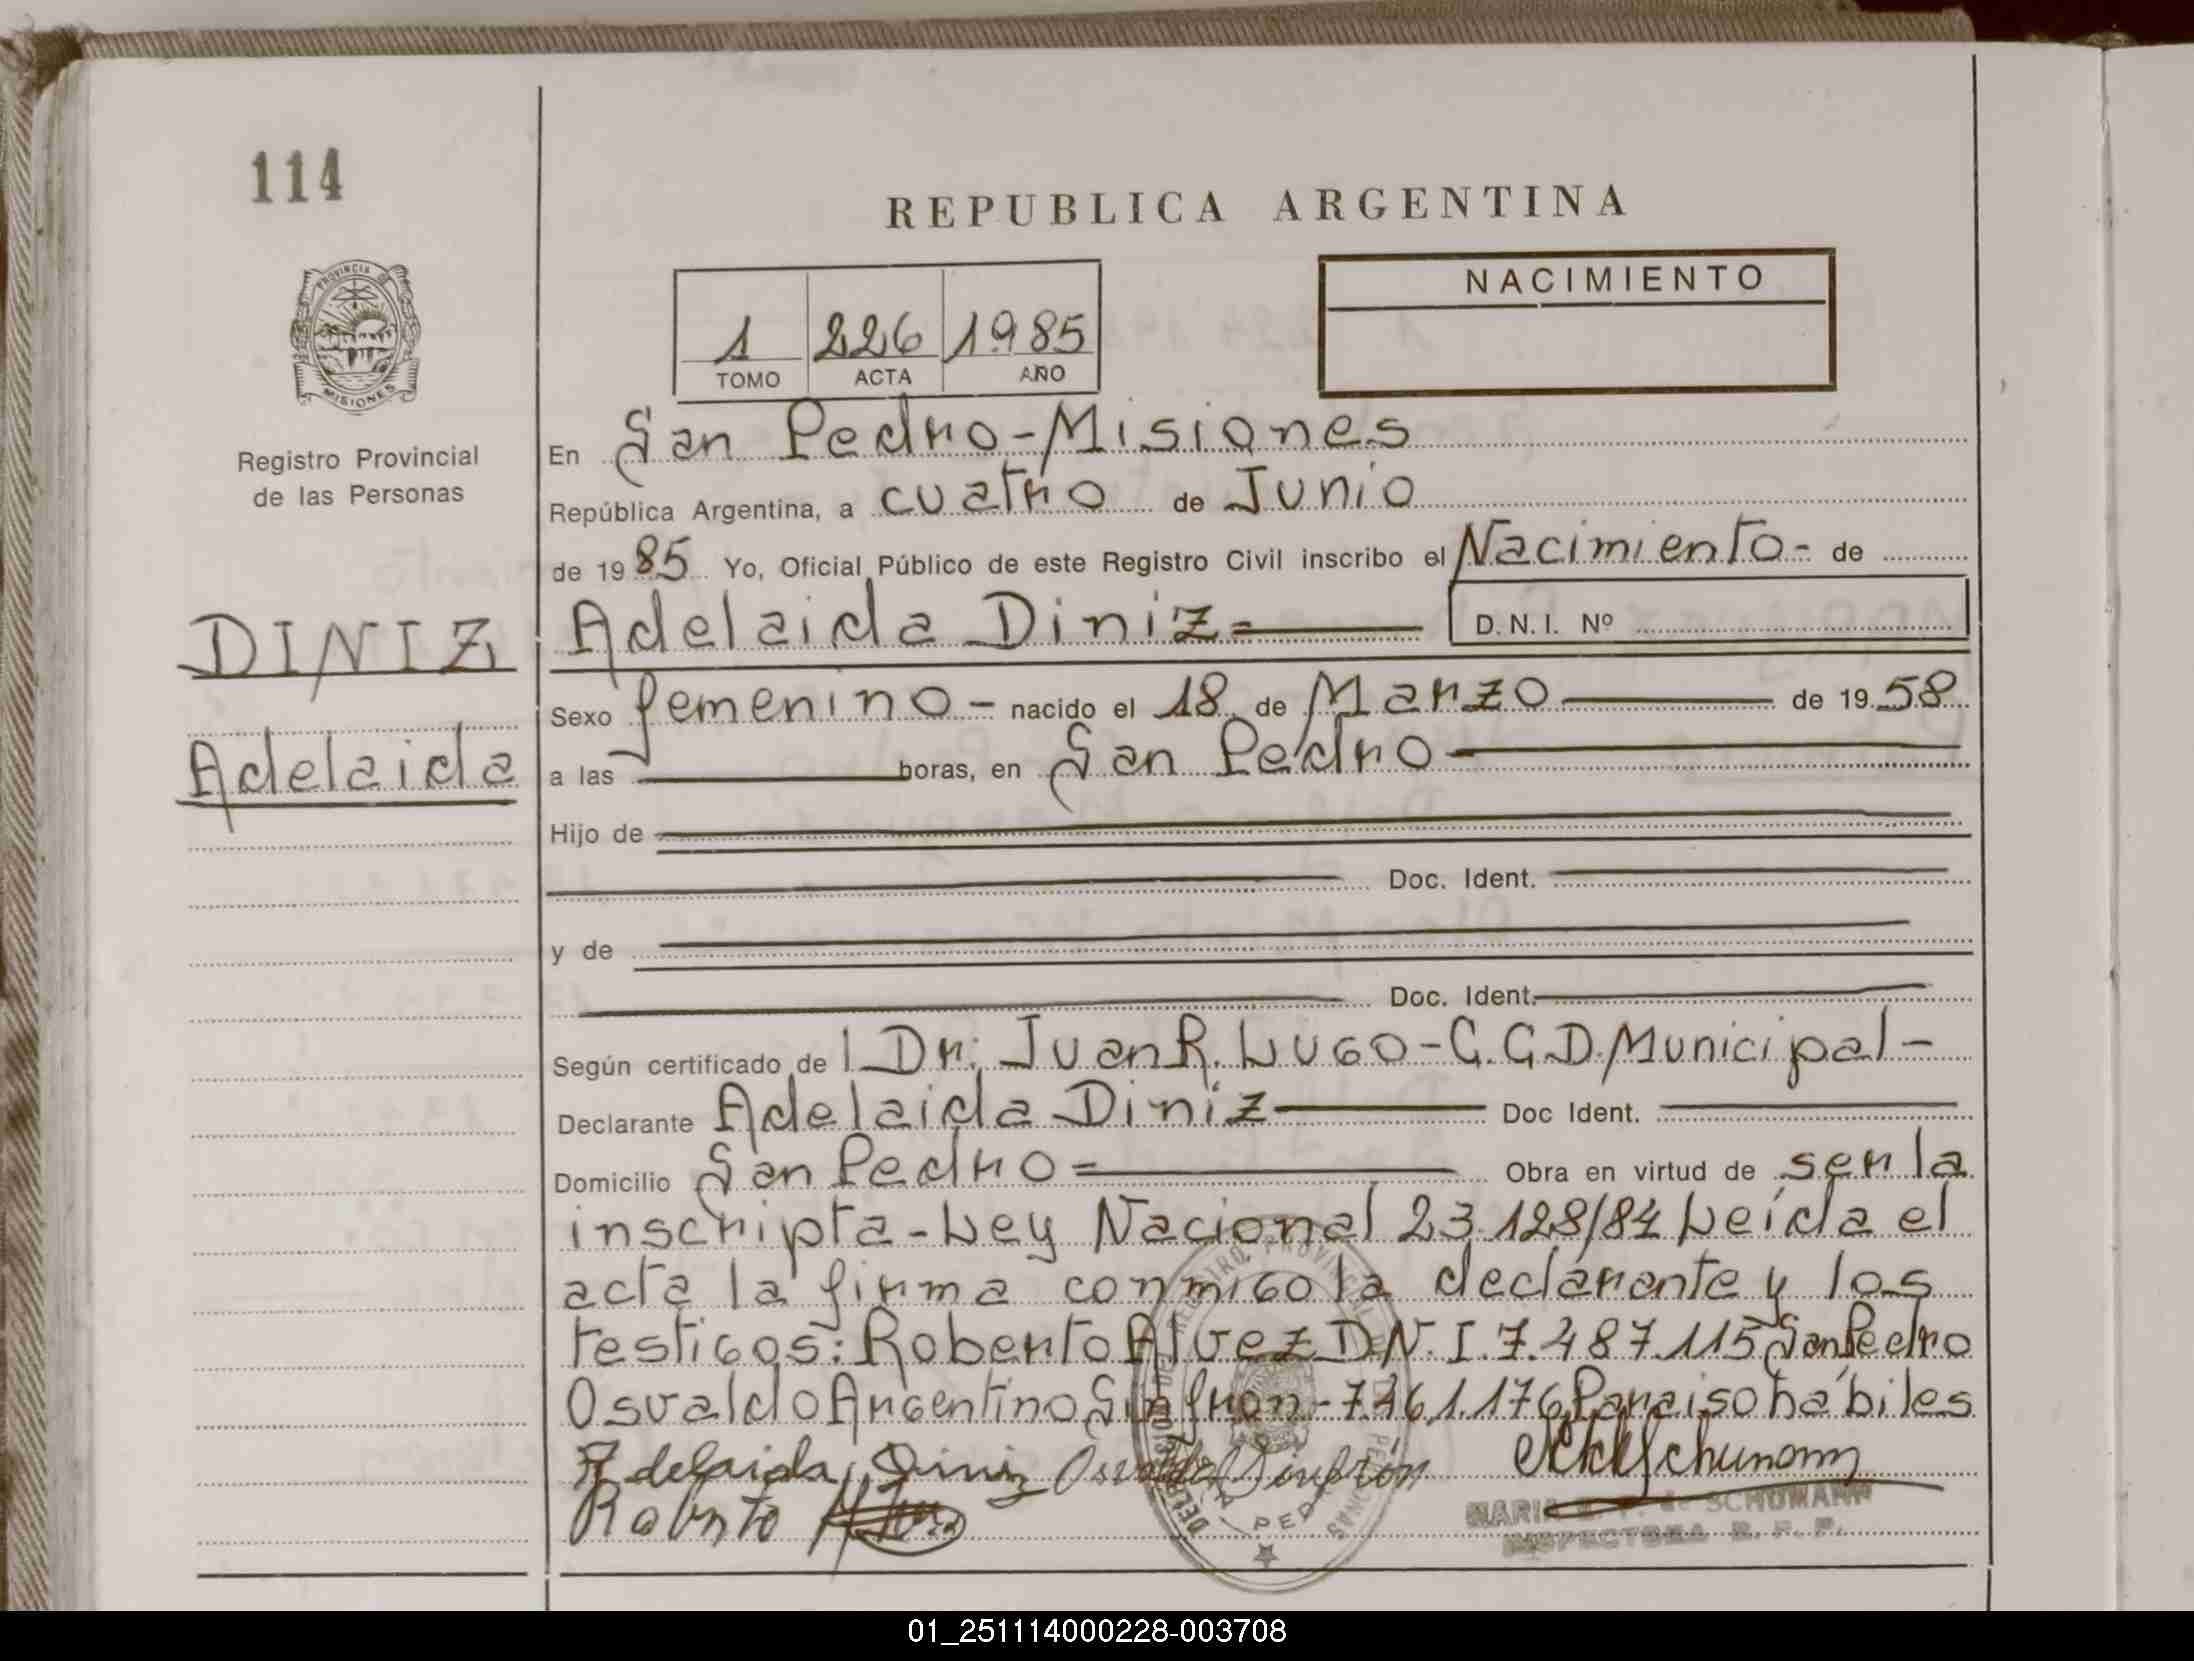 114
REPUBLICA ARGENTINA
PROVINCIA DE
MISIONES
NACIMIENTO
1 226 1985
TOMO ACTA AÑO
Registro Provincial
de las Personas
En San Pedro-Misiones
República Argentina, a cuatro de Junio
de 1985 Yo, Oficial Público de este Registro Civil inscribo el Nacimiento- de
DINIZ
Adelaida Diniz= D.N.I. Nº
Sexo femenino- nacido el 18 de Marzo de 1958
Adelaida
a las horas, en San Pedro
Hijo de
Doc. Ident.
y de
Doc. Ident.
Según certificado de l Dr. Juan R. Lugo-G.G.D. Municipal-
Declarante Adelaida Diniz Doc Ident.
Domicilio San Pedro= Obra en virtud de ser la
inscripta-Ley Nacional 23.128/84 Leída el
acta la firma conmigo la declarante y los
testigos: Roberto Alvez D.N.I. 7.487.115 San Pedro
Osvaldo Argentino Sinfron-7.461.176 Paraiso hábiles
Adelaida Diniz Osvaldo Sinfron Schumann
Roberto
MARIA de SCHUMANN
INSPECTORA R. P. P.
REGISTRO PROVINCIAL DE LAS PERSONAS
01_251114000228-003708